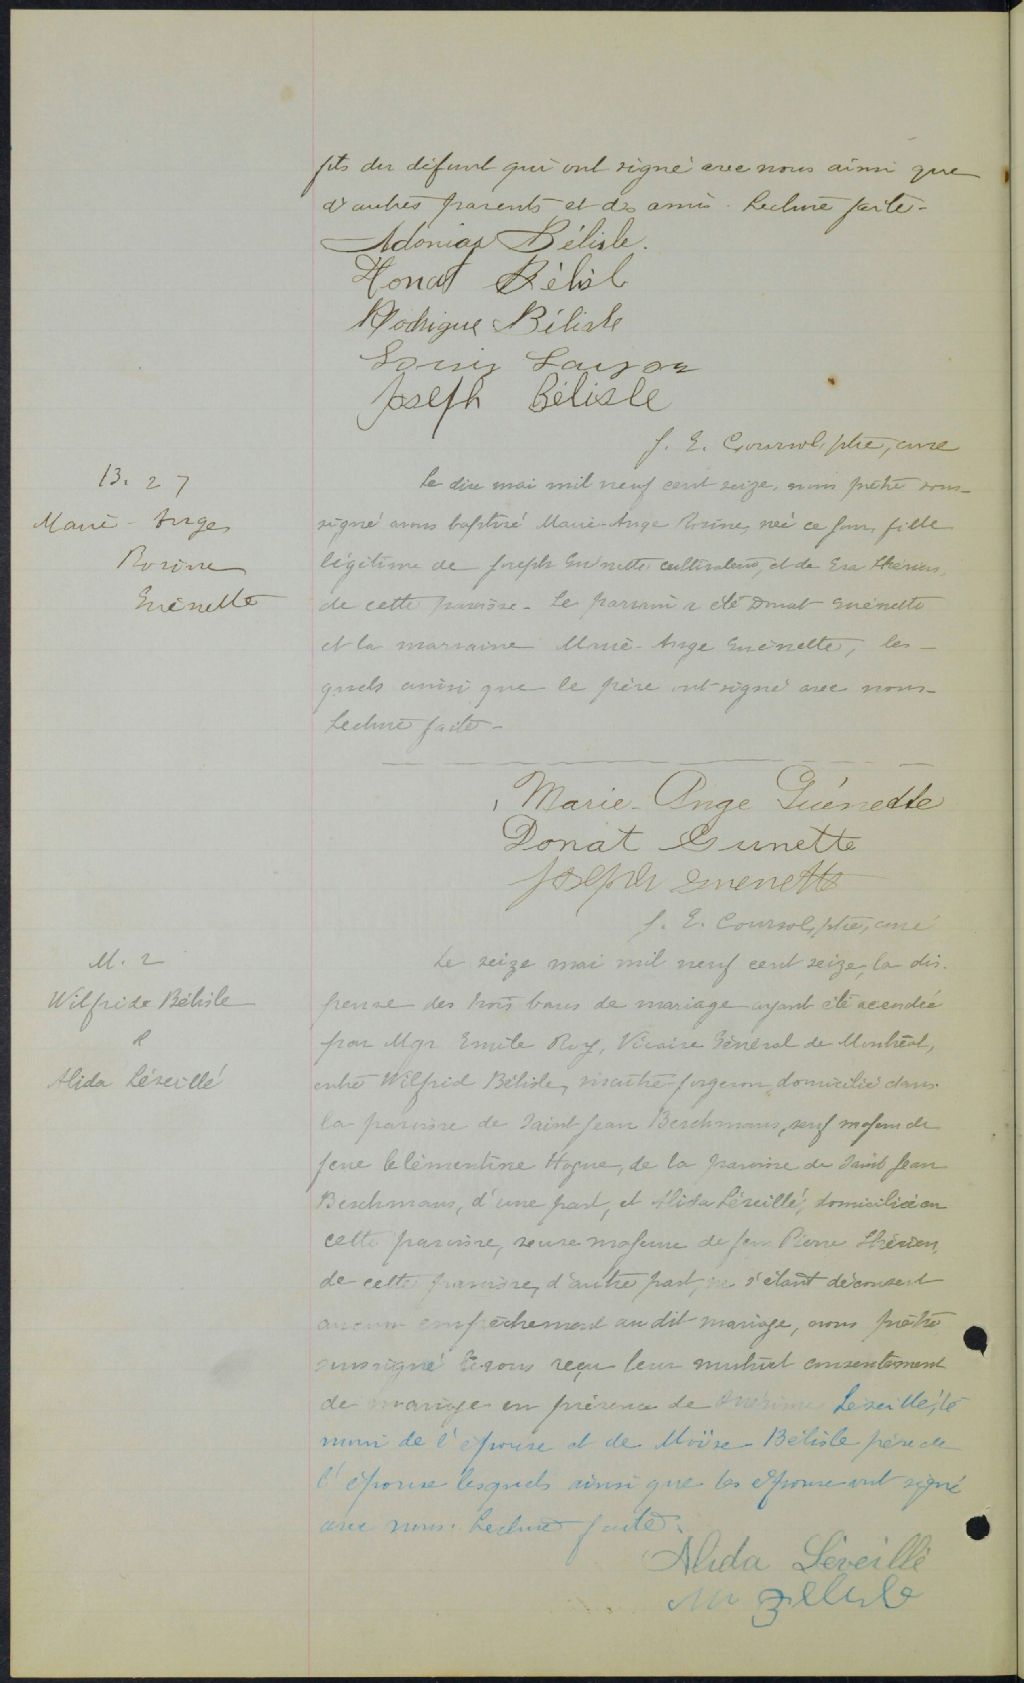 fils du défunt qui ont signé avec nous ainsi que
d'autres parents et des amis. Lecture faite-
Adonias Bélisle.
Honat Bélisl
Rodrigue Bélisle
Louis
Joseph Bélisle
J. E. Coursol, ptre, curé
B. 27
Marie-Ange
Rosine
Guénette
Le dix mai mil neuf cent seize, nous prêtre sous-
signé avons baptisé Marie-Ange Rosine, née ce jour, fille
légitime de Joseph Guénette cultivateur, et de Eva Thérien,
de cette paroisse- Le parrain a été Donat Guénette
et la marraine Marie-Ange Guénette, les-
quels ainsi que le père ont signé avec nous-
Lecture faite-
Marie-Ange Guénette
Donat Gunette
Joseph Guenette
J. E. Coursol, ptre, curé
M. 2
Wilfride Bélisle
&
Alida Léveillé
Le seize mai mil neuf cent seize, la dis-
pense des trois bans de mariage ayant été accordée
par Mgr Emile Roy, Vicaire Général de Montréal,
entre Wilfrid Bélisle, maître-forgeron, domicilié dans
la paroisse de Saint Jean Berchmans, veuf majeur de
feue Clémentine Hogue, de la paroisse de Saint Jean
Berchmans, d'une part, et Alida Léveillé, domiciliée en
cette paroisse, veuve majeure de feu Pierre Thérien,
de cette paroisse, d'autre part, ne s'étant découvert
aucun empêchement au dit mariage, nous prêtre
soussigné avons reçu leur mutuel consentement
de mariage en présence de Léveillé,
de l'épouse et de Moïse Bélisle père de
l'épouse lesquels ainsi que les épouse ont signé
avec nous. Lecture faite.
Alida Léveillé
M Bélisle